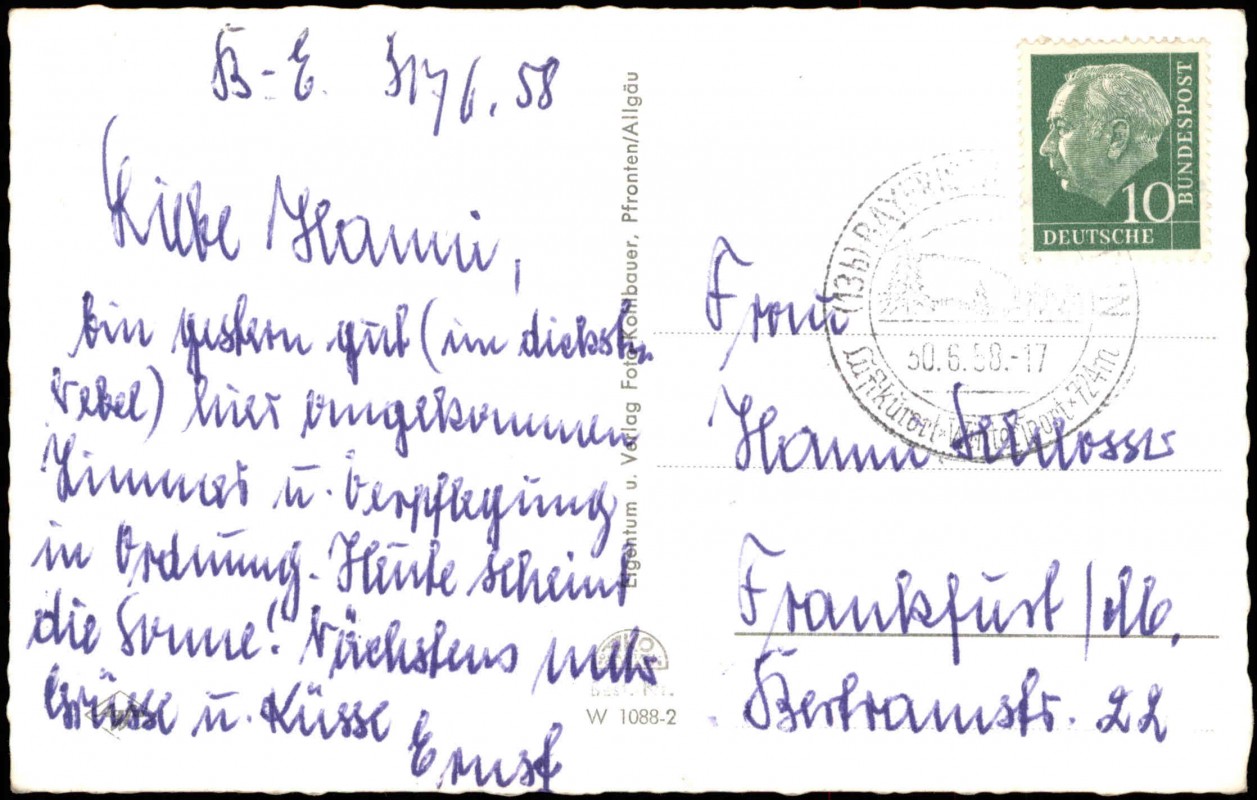 B-E. 30/6.58
Liebe Hanni,
bin gestern gut (im dicksten
Nebel) hier angekommen
Zimmer u. Verpflegung
in Ordnung. Heute scheint
die Sonne! Nächstens mehr
Grüsse u. Küsse
Ernst
Eigentum u. Verlag Foto-Kohlbauer, Pfronten/Allgäu
Best.-Nr.
W 1088-2
DEUTSCHE
BUNDESPOST
10
(13b) BAYERISCH
30.6.58.-17
Luftkurort * Wintersport * 724m
Frau
Hanni Schlosser
Frankfurt/M.
Bertramstr. 22